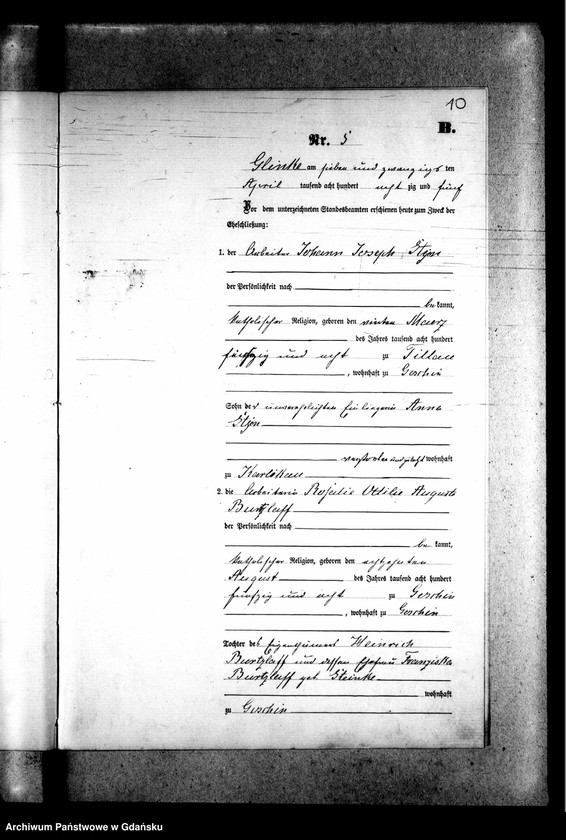 10
B.
Nr. 5
Glinke am sieben und zwanzigs ten
April tausend acht hundert acht zig und fünf
Vor dem unterzeichneten Standesbeamten erschienen heute zum Zweck der
Eheschließung:
1. der Arbeiter Johann Joseph
der Persönlichkeit nach
be kannt,
katholischer Religion, geboren den vierten Maerz
des Jahres tausend acht hundert
fünfzig und acht zu
, wohnhaft zu Goschin
Sohn der unverehelichten Einliegerin Anna
verstorben und zuletzt wohnhaft
zu Karlikau
2. die Arbeiterin Rosalie Ottilie Auguste
Burtzlaff
der Persönlichkeit nach
be kannt,
katholischer Religion, geboren den achtzehnten
August des Jahres tausend acht hundert
fünfzig und acht zu Goschin
, wohnhaft zu Goschin
Tochter des Eigenthümers Heinrich
Burtzlaff und dessen Ehefrau Franziska
Burtzlaff geb. Glinke
wohnhaft
zu Goschin
Archiwum Państwowe w Gdańsku